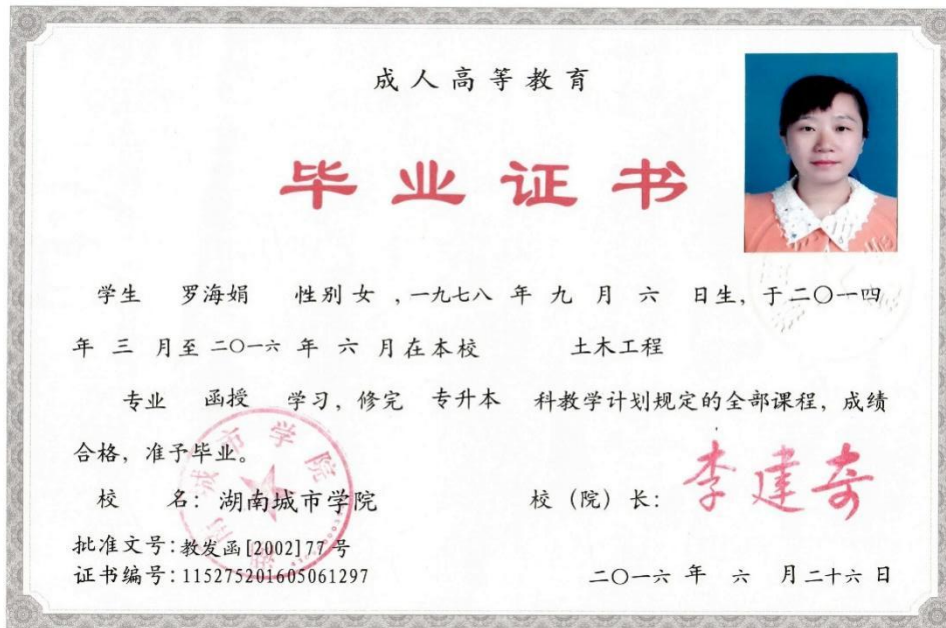 成人高等教育
毕业证书
学生 罗海娟 性别 女 ,一九七八 年 九 月 六 日生, 于二〇一四
年 三 月至 二〇一六 年 六 月在本校 土木工程
专业 函授 学习, 修完 专升本 科教学计划规定的全部课程, 成绩
合格, 准予毕业。
校 名: 湖南城市学院
校 (院) 长: 李建奇
批准文号: 教发函[2002]77号
证书编号: 115275201605061297
二〇一六 年 六 月二十六 日
湖南城市学院